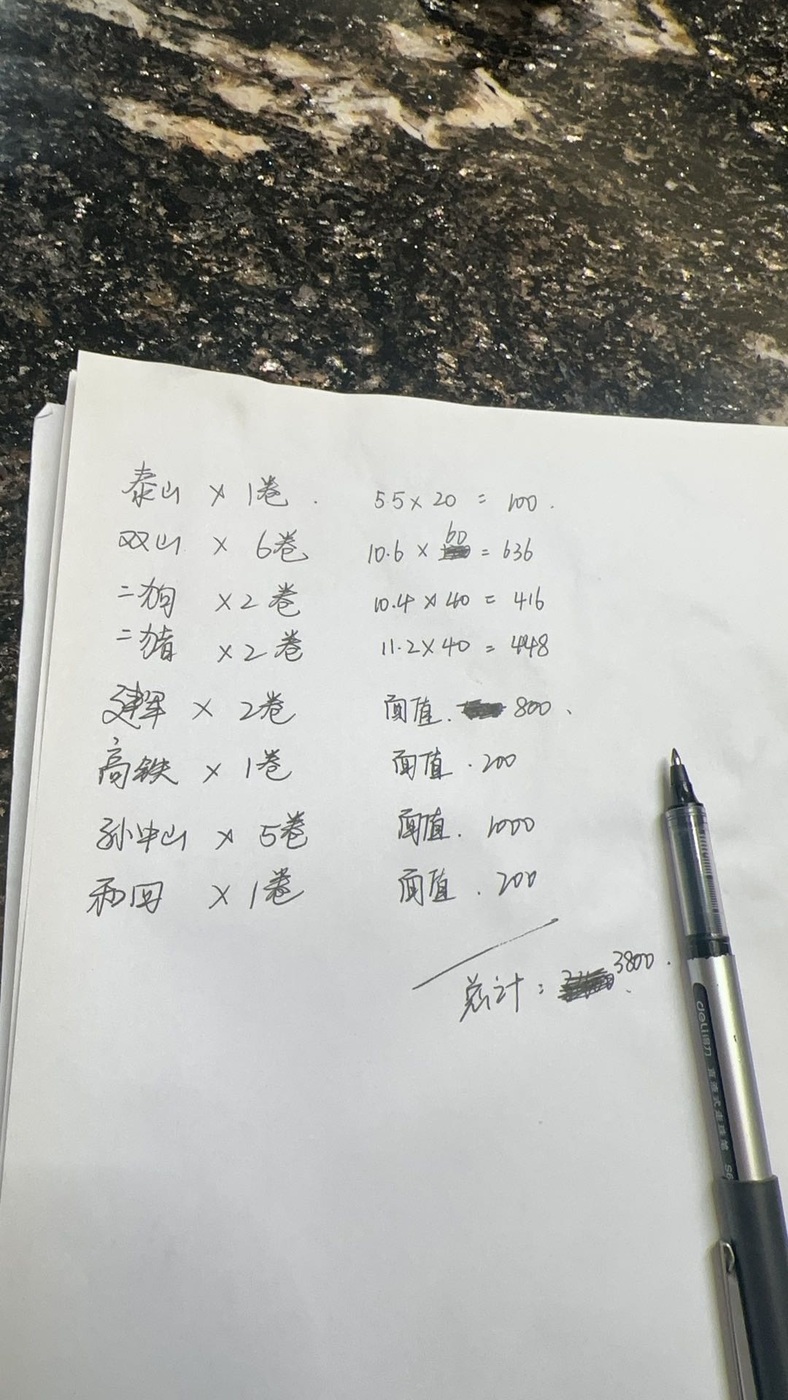 泰山 × 1卷. 5.5×20 = 100.
双山 × 6卷 10.6 × 60 = 636
二狗 ×2卷 10.4 × 40 = 416
二猪 ×2卷 11.2×40 = 448
建军 × 2卷 面值. 800、
高铁 × 1卷 面值.200
孙中山 × 5卷 面值. 1000
和田 × 1卷 面值. 200
总计: 3800.
deli得力 直液式走珠笔